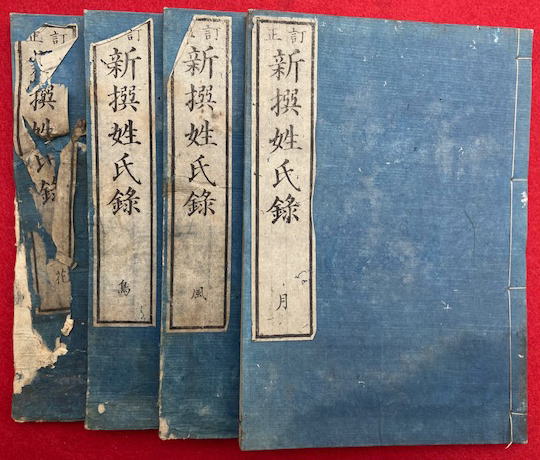 訂正
撰姓氏錄
花
訂
新撰姓氏錄
鳥
訂正
新撰姓氏錄
風
訂正
新撰姓氏錄
月